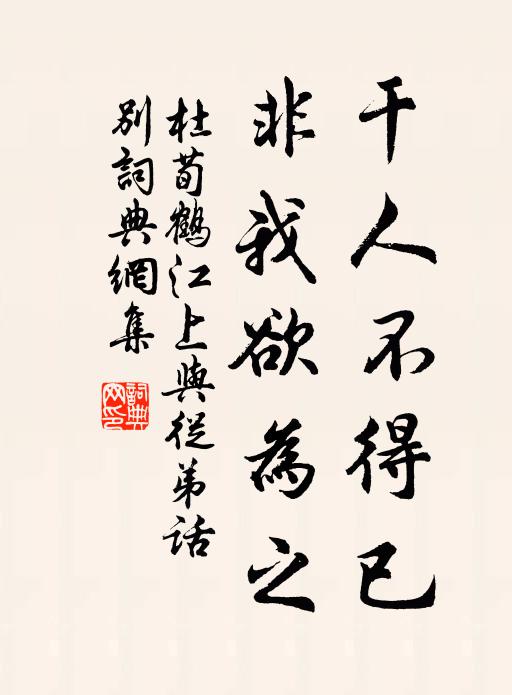 干人不得已
非我欲為之
杜荀鶴江上與從弟話
別詞典網集
詞典
网印